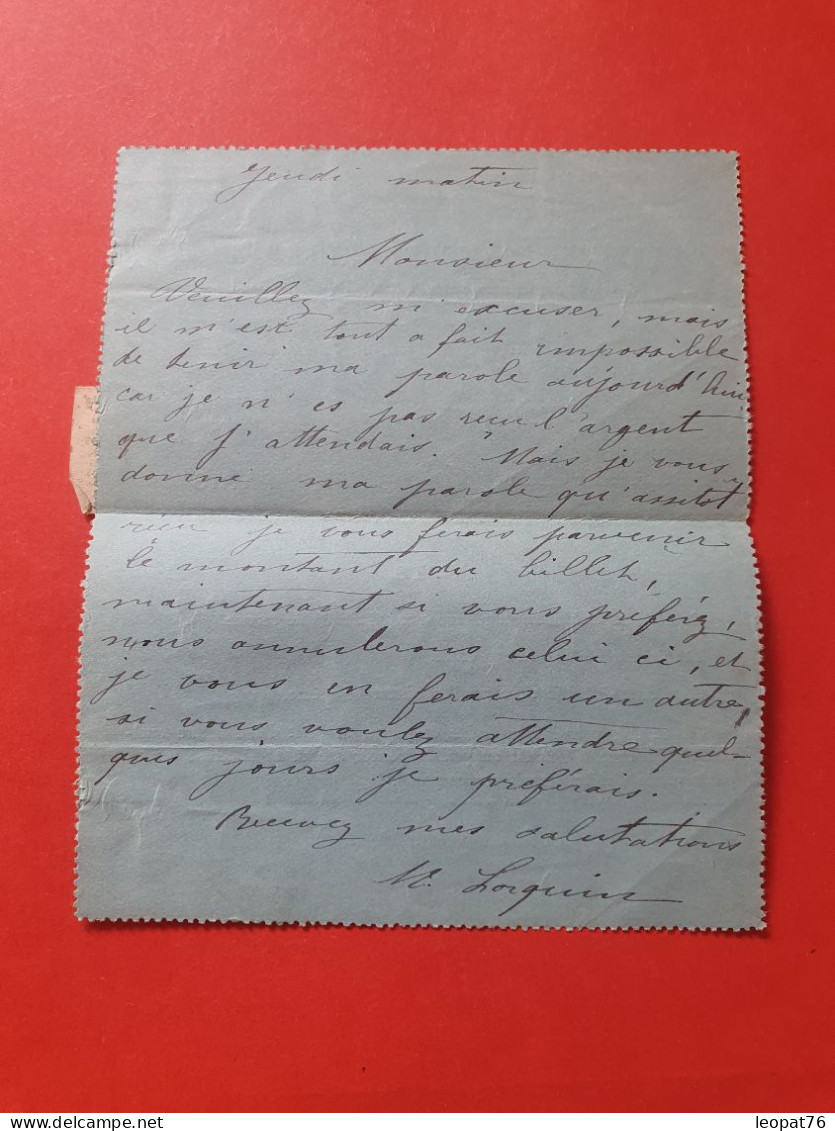 Jeudi matin
Monsieur
Veuillez m'excuser, mais
il m'est tout a fait impossible
de tenir ma parole aujourd'hui
car je n'es pas recu l'argent
que j'attendais. Mais je vous
donne ma parole qu'assitot
recu je vous ferais parvenir
le montant du billet,
maintenant si vous préférez,
nous annulerons celui ci, et
je vous en ferais un autre,
si vous voulez attendre quel-
ques jours je préférais.
Recevez mes salutations
M. Lorquin
delcampe.net
leopat76